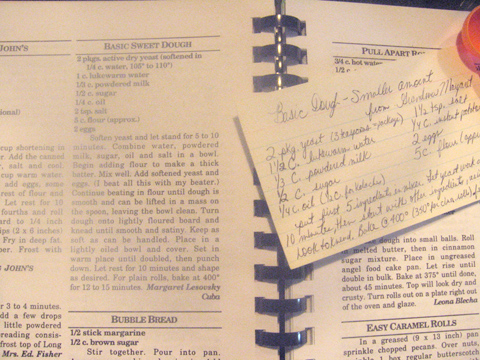 JOHN'S
cup shortening in
Add the canned
salt and cool.
cup warm water.
add eggs, some
rest of flour and
Let rest for 10
fourths and roll
to 1/4 inch
(2 x 6 inches)
Fry in deep fat.
Frost with
JOHN'S
for 3 to 4 minutes.
Add a few drops
little powdered
reading consis-
frost top of Long
Mrs. Ed. Fisher
BASIC SWEET DOUGH
2 pkgs. active dry yeast (softened in
1/4 c. water, 105° to 110°)
1 c. lukewarm water
1/2 c. powdered milk
1/2 c. sugar
1/4 c. oil
2 tsp. salt
5 c. flour (approx.)
2 eggs
Soften yeast and let stand for 5 to 10
minutes. Combine water, powdered
milk, sugar, oil and salt in a bowl.
Begin adding flour to make a thick
batter. Mix well. Add softened yeast and
eggs. (I beat all this with my beater.)
Continue beating in flour until dough is
smooth and can be lifted in a mass on
the spoon, leaving the bowl clean. Turn
dough onto lightly floured board and
knead until smooth and satiny. Keep as
soft as can be handled. Place in a
lightly oiled bowl and cover. Set in
warm place until doubled, then punch
down. Let rest for 10 minutes and shape
as desired. For plain rolls, bake at 400°
for 12 to 15 minutes. Margaret Lesovsky
Cuba
BUBBLE BREAD
1/2 stick margarine
1/2 c. brown sugar
Stir together. Pour into pan.
PULL APART
3/4 c. hot water
1/2 c.
Basic Dough - Smaller amount
from Grandma
2 pkg. yeast
1 1/2 C. lukewarm water
1/2 C. powdered milk
1/2 C. sugar
1/4 C. oil
1 1/2 tsp. salt
1/4 C. instant
2 eggs
5 C. flour
put first 5 ingredients in mixer. Let yeast work
10 minutes, then start with other ingredients
Bake @ 400°
dough into small balls. Roll
melted butter, then in cinnamon
sugar mixture. Place in ungreased
angel food cake pan. Let rise until
double in bulk. Bake at 375° until done,
about 45 minutes. Top will look dry and
crusty. Turn rolls out on a plate right out
of the oven and glaze. Leona Blecha
EASY CARAMEL ROLLS
In a greased (9 x 13 inch) pan,
sprinkle chopped pecans. Over nuts,
regular butterscotch